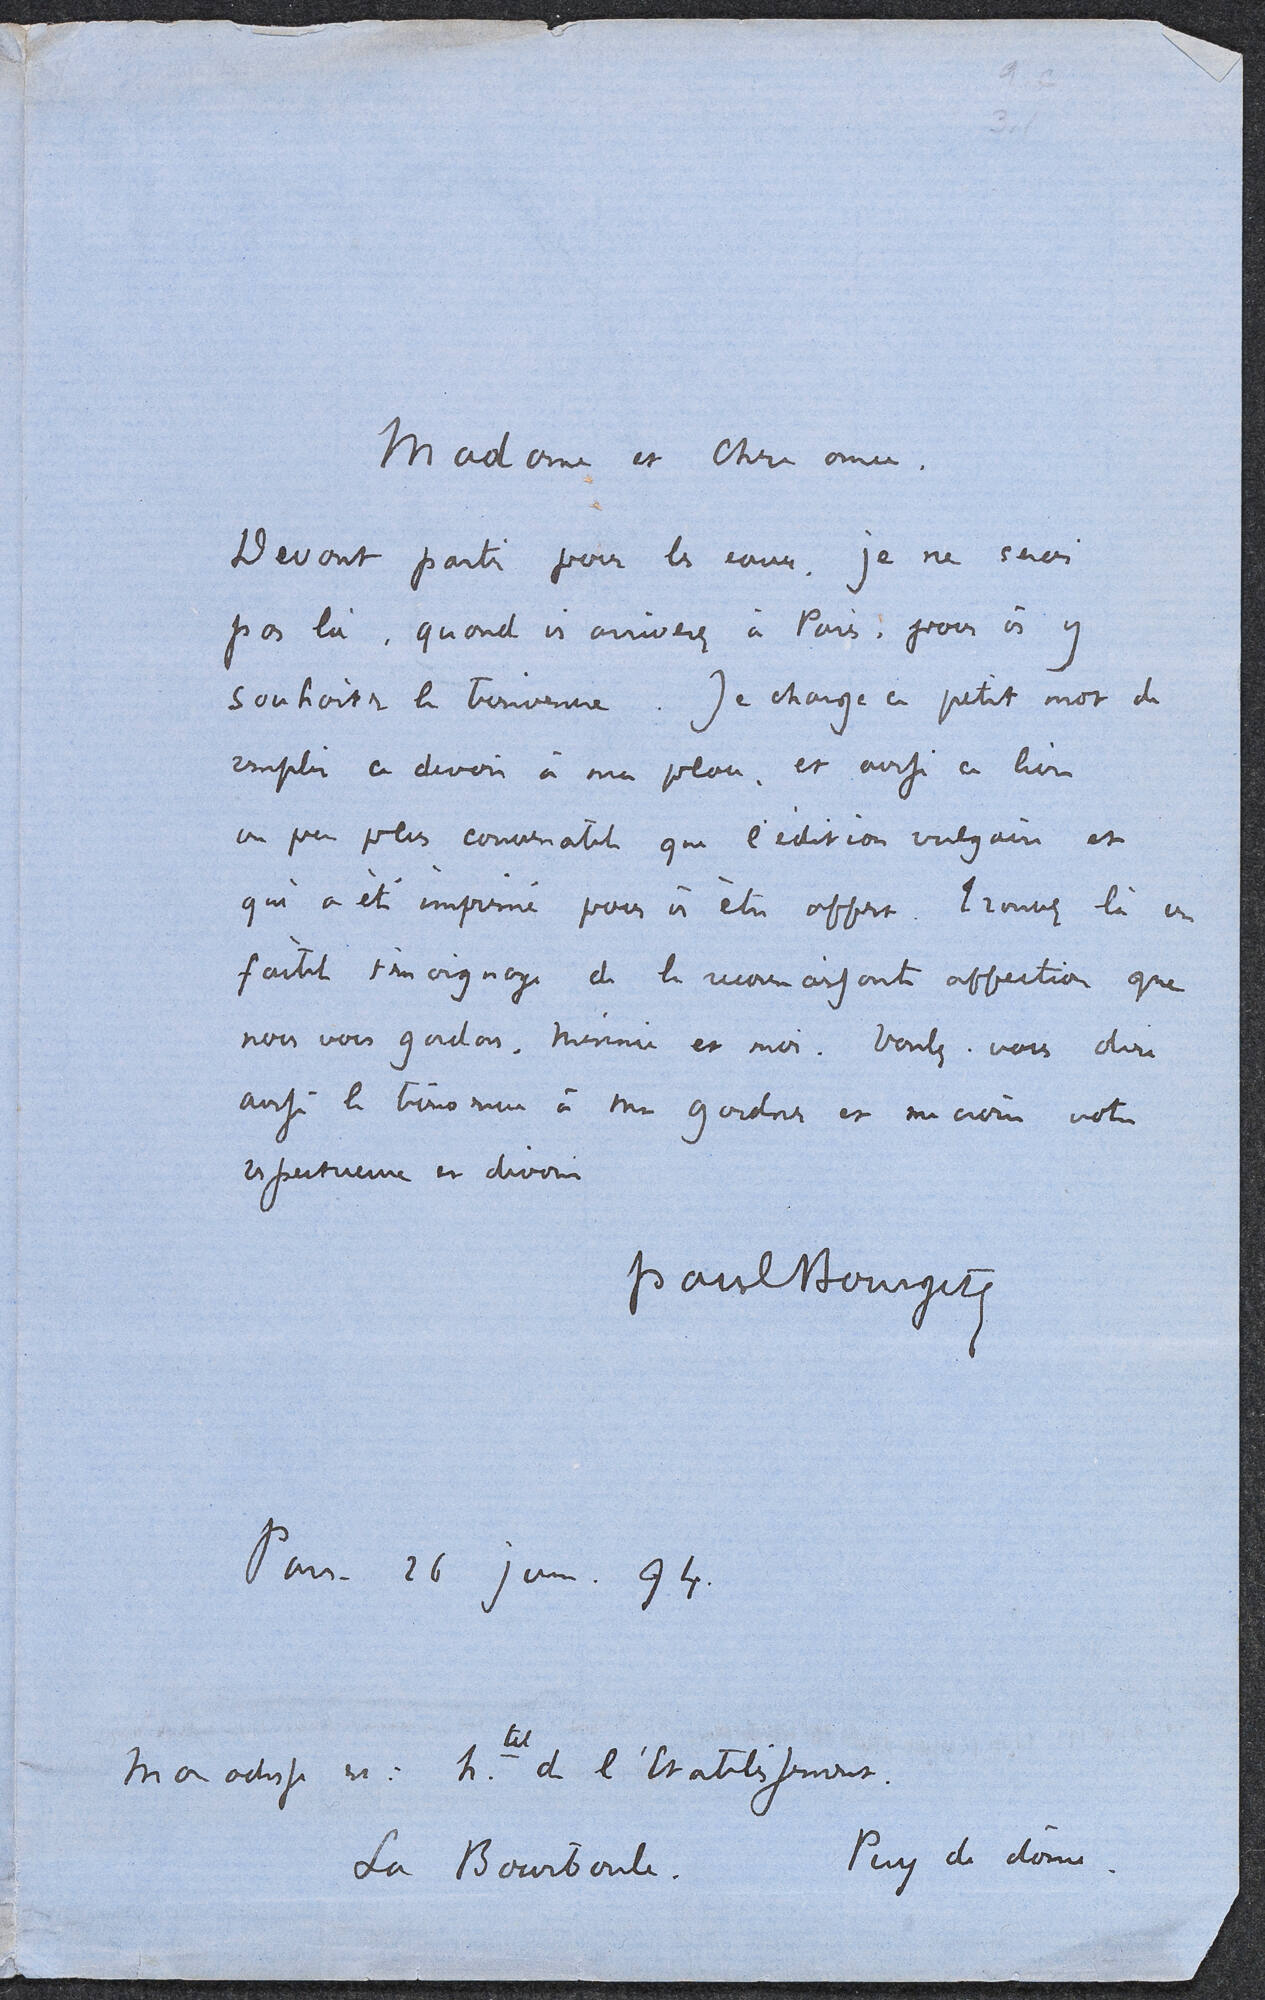 Madame et chère amie.
Devant partir pour les eaux, je ne serai
pas là, quand vs arriverez à Paris, pour vs y
souhaiter la bienvenue. Je charge ce petit mot de
remplir ce devoir à ma place, et aussi ce livre
un peu plus convenable que l'édition vulgaire et
qui a été imprimé pour vs être offert. Trouvez là un
faible témoignage de la reconnaissante affection que
nous vous gardons, Minnie et moi. Voulez-vous dire
aussi la bienvenue à Mr Gardner et me croire votre
respectueux et dévoué
Paul Bourget
Paris - 26 juin. 94.
Mon adresse est : h.tel de l'Etablissement.
La Bourboule. Puy de dôme.